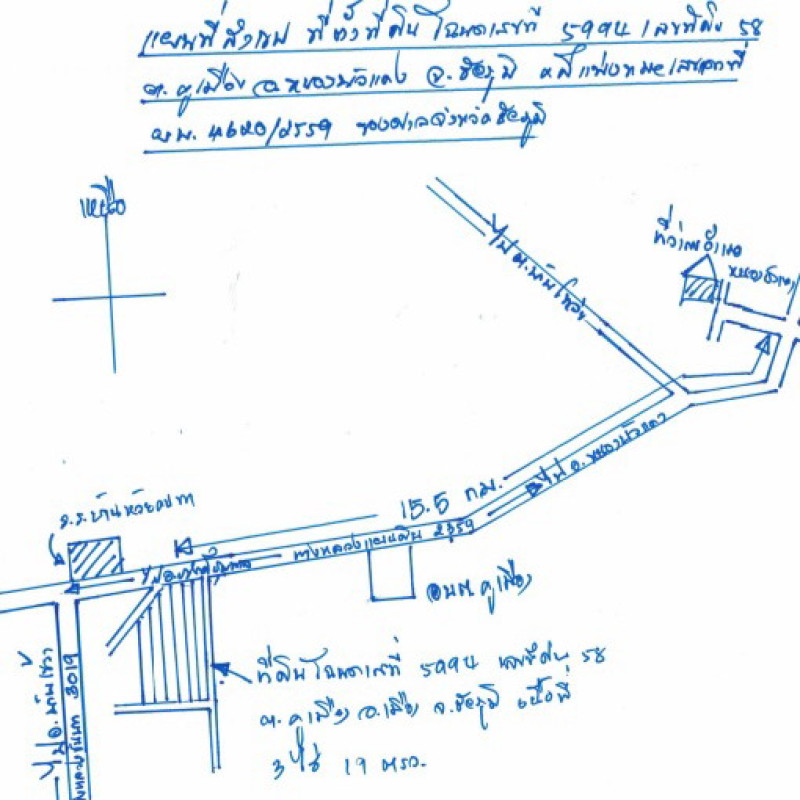 แผนที่สังเขป ที่ตั้งที่ดิน โฉนดเลขที่ 5994 เลขที่ดิน 58
ต.คูเมือง อ.หนองบัวแดง จ.ชัยภูมิ คดีแพ่งหมายเลขแดงที่
ผบ. 4620/2559 ของศาลจังหวัดชัยภูมิ
เหนือ
ที่ว่าการอำเภอ
หนองบัวแดง
ไป ต.
15.5 กม.
ไป อ.หนองบัวแดง
ทางหลวงแผ่นดิน 2359
ร.ร.บ้านห้วย
อบต.คูเมือง
ที่ดินโฉนดเลขที่ 5994 เลขที่ดิน 58
ต.คูเมือง อ.เมือง จ.ชัยภูมิ เนื้อที่
3 ไร่ 19 ตรว.
ไป อ.บ้านเขว้า
ทางหลวงชนบท 3019